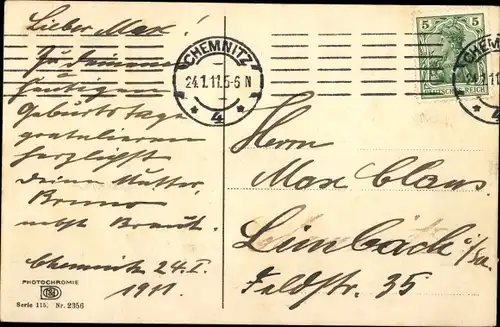 Lieber Max!
Zu Deinem
heutigen
Geburtstage
gratulieren
herzlichst
Deine Mutter,
Bruno
nebst Braut.
Chemnitz 24.I.
1911.
PHOTOCHROMIE
Serie 115. Nr. 2356
CHEMNITZ
24.1.11.5-6 N
* 4 *
5 5
DEUTSCHES REICH
CHEMNITZ
24.1.11
* 4
Herrn
Max Claus
Limbach i/Sa.
Feldstr. 35